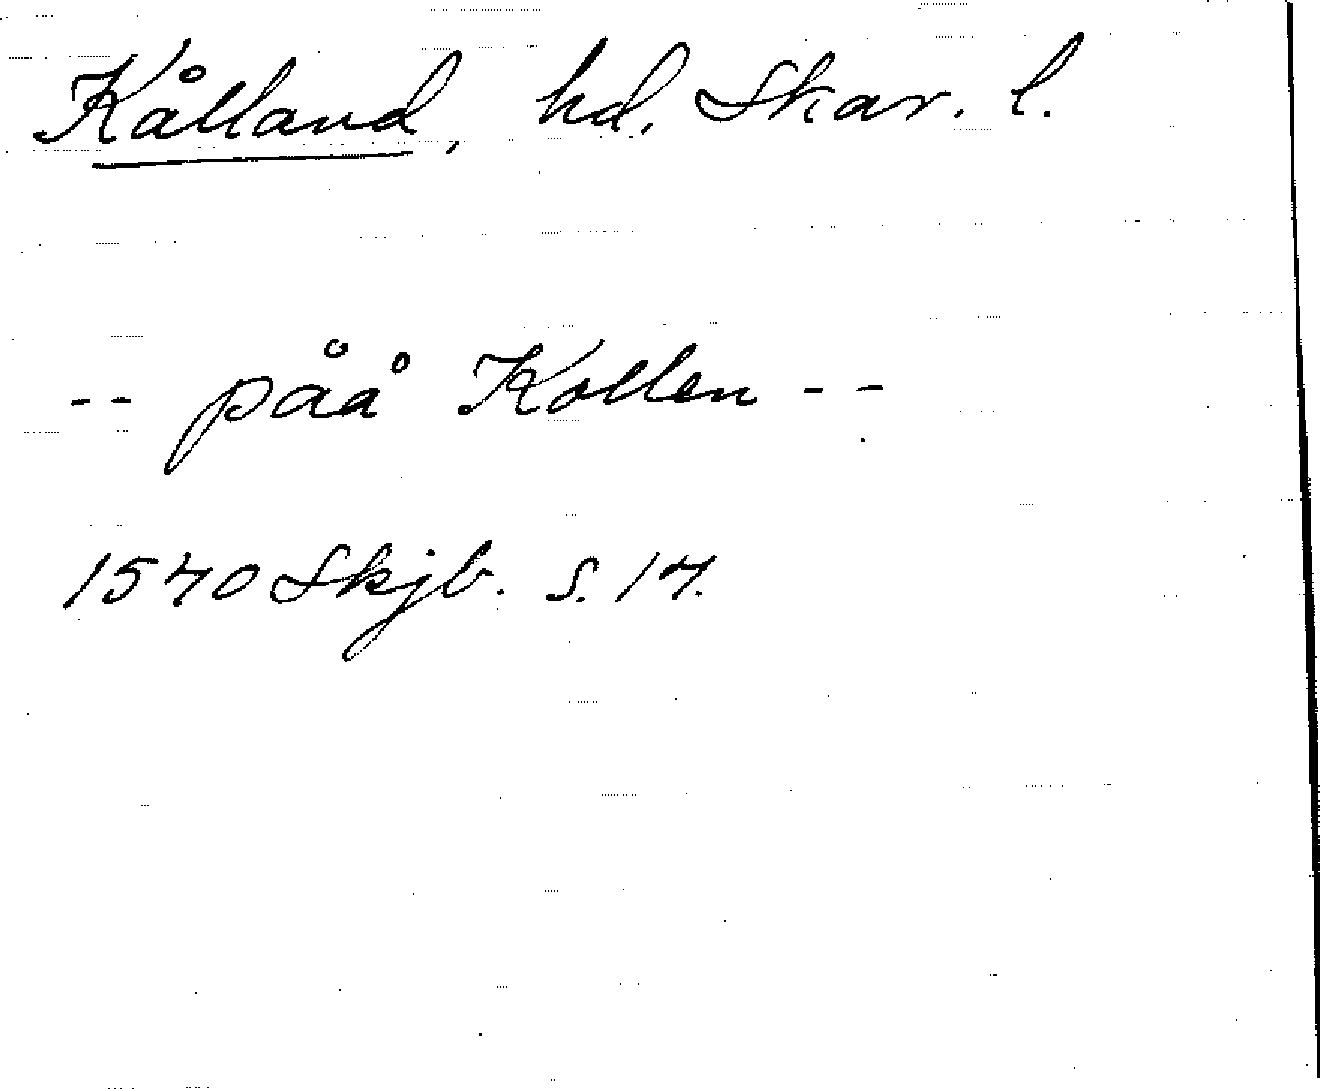 Kålland, hd, Skar. l.
-- påå Kollen --
1540 Skjb. s. 14.